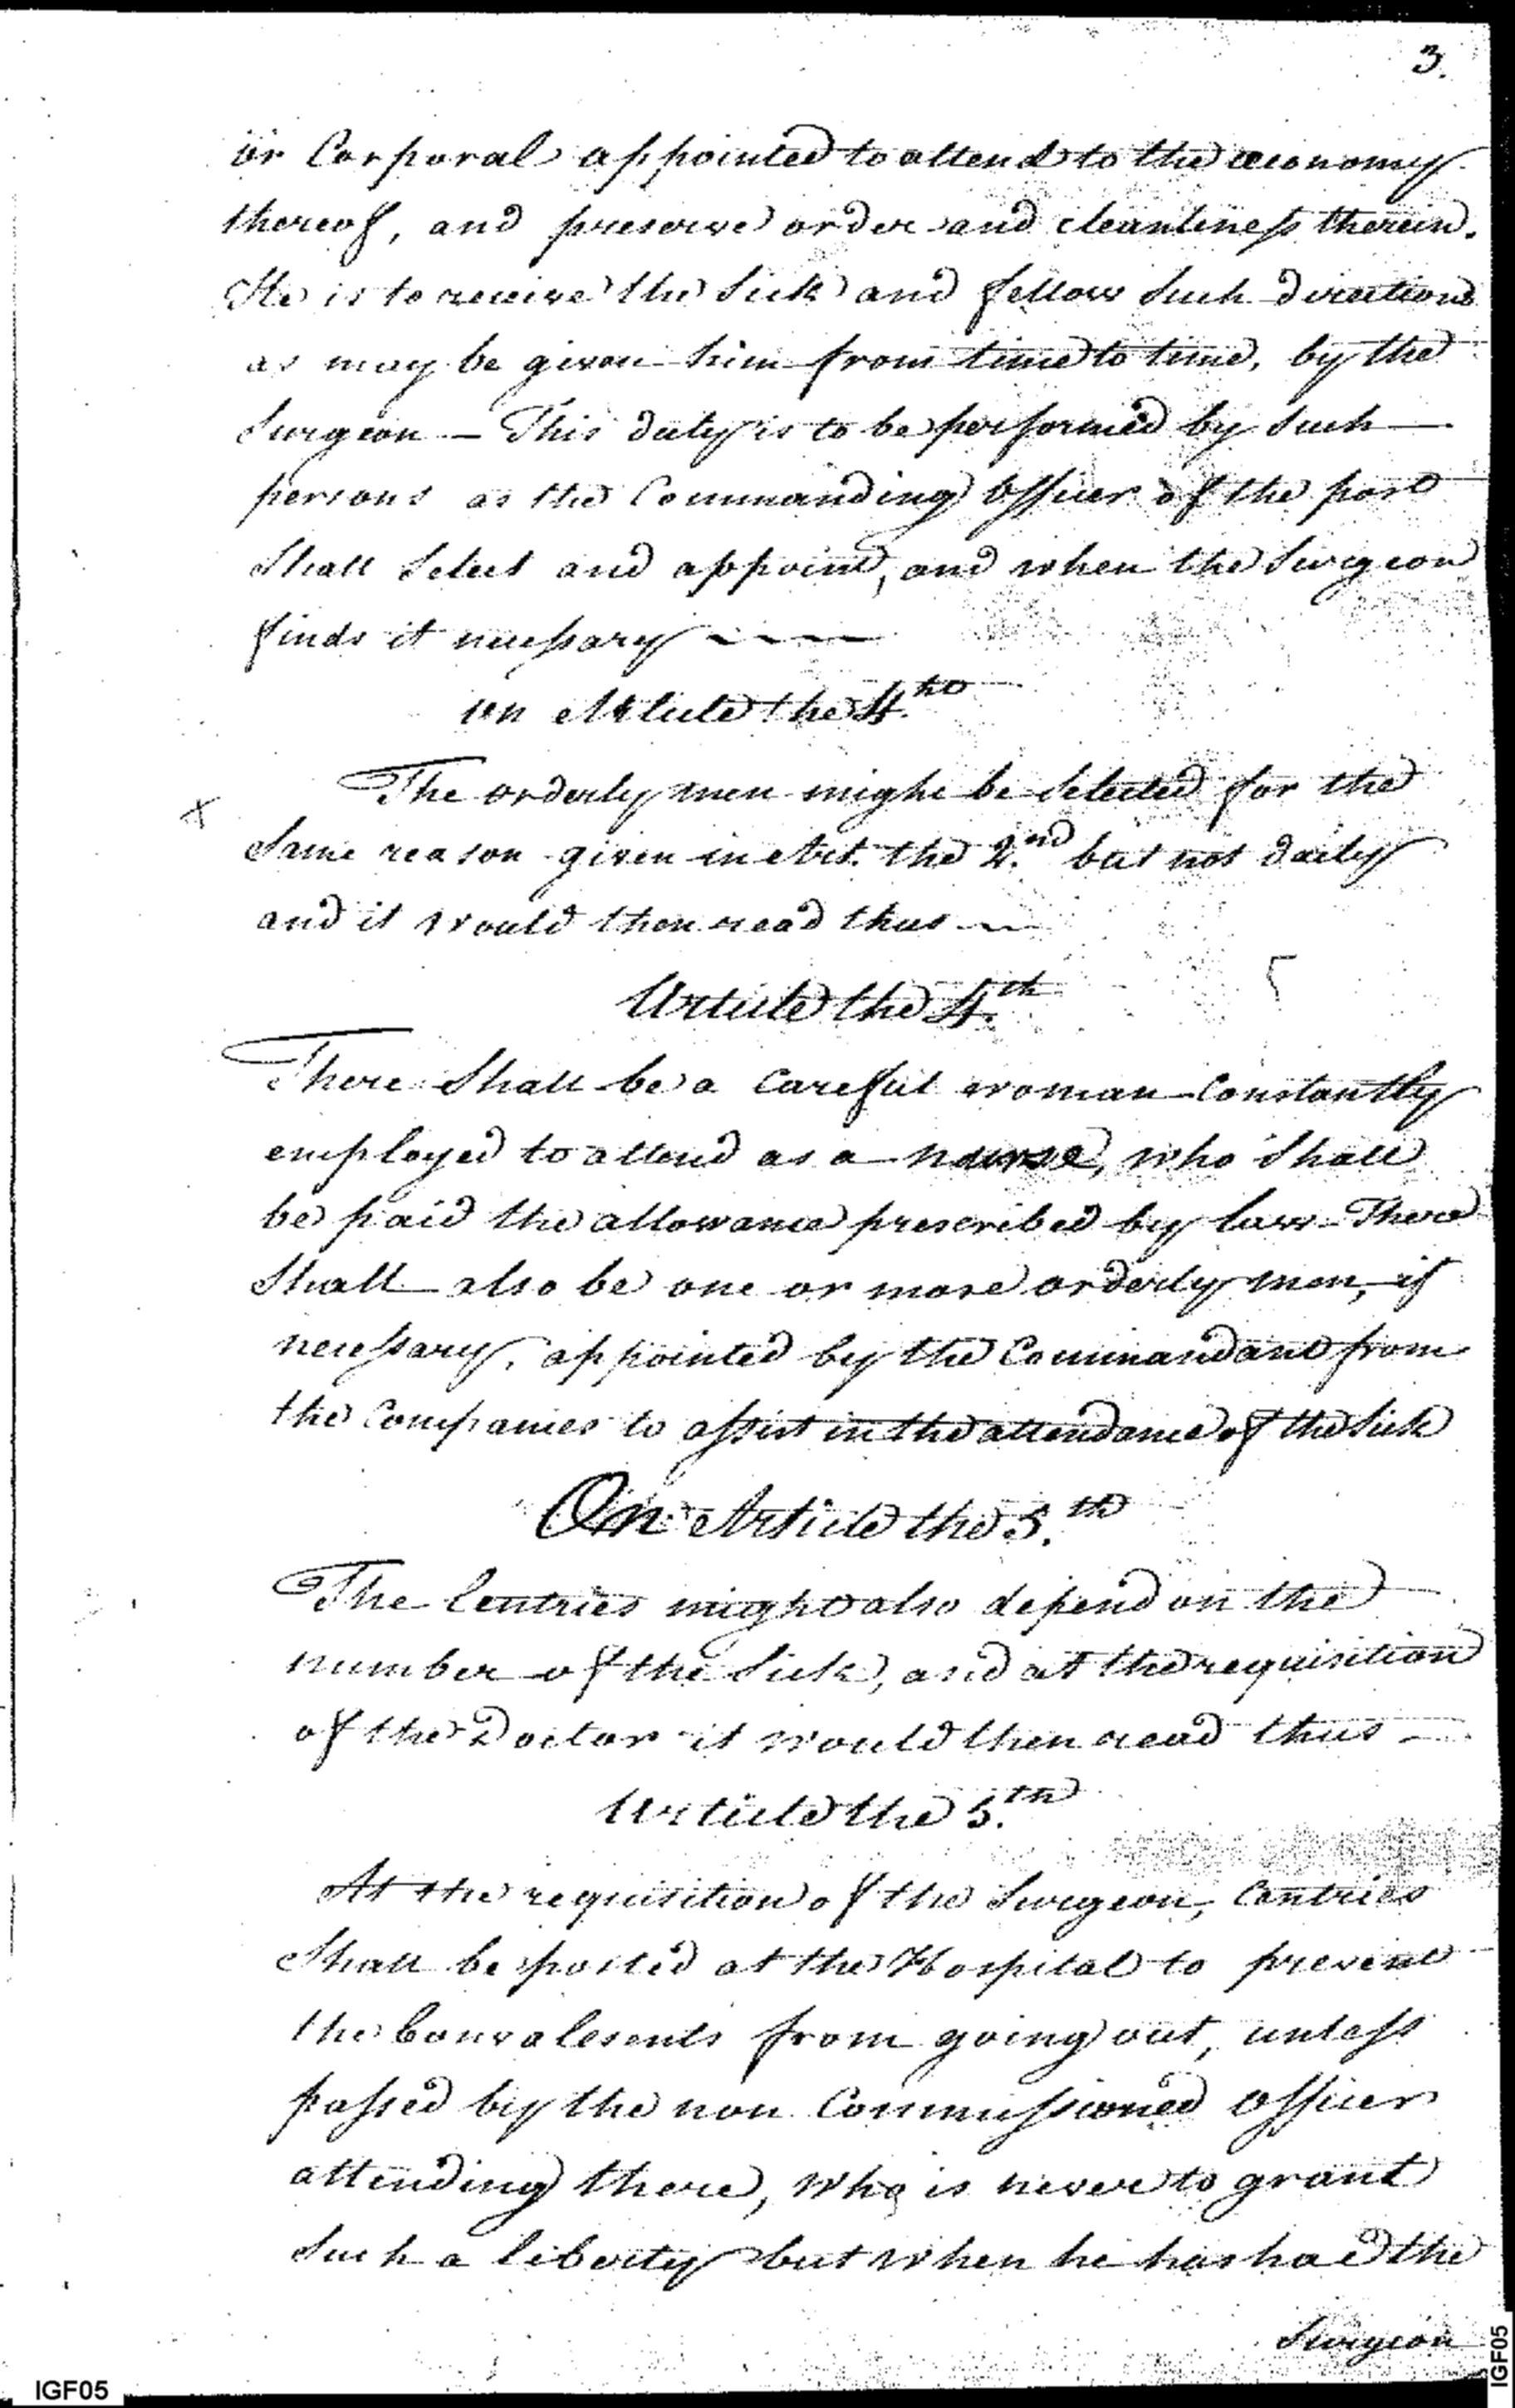 3.
or Corporal appointed to attend to the œconomy
thereof, and preserve order and cleanliness therein.
He is to receive the Sick and follow Such directions
as may be given him from time to time, by the
Surgeon — This duty is to be performed by Such —
persons as the Commanding Officer of the post
Shall Select and appoint, and when the Surgeon
finds it necessary — — —
on Article the 4.th
X The orderly men might be Selected for the
Same reason given in Art. the 2.nd but not daily
and it would then read thus —
Article the 4.th
There Shall be a Careful woman Constantly
employed to attend as a nurse, who Shall
be paid the allowance prescribed by law – There
Shall also be one or more orderly men, if
necessary, appointed by the Commandant from
the Companies to assist in the attendance of the Sick
On Article the 5.th
The Centries might also depend on the
number of the Sick, and at the requisition
of the Doctor it would then read thus —
Article the 5.th
At the requisition of the Surgeon, Centries
Shall be posted at the Hospital to prevent
the Convalesents from going out, unless
passed by the non Commissioned officer
attending there, who is never to grant
Such a liberty but when he has had the
Surgeon
IGF05
IGF05